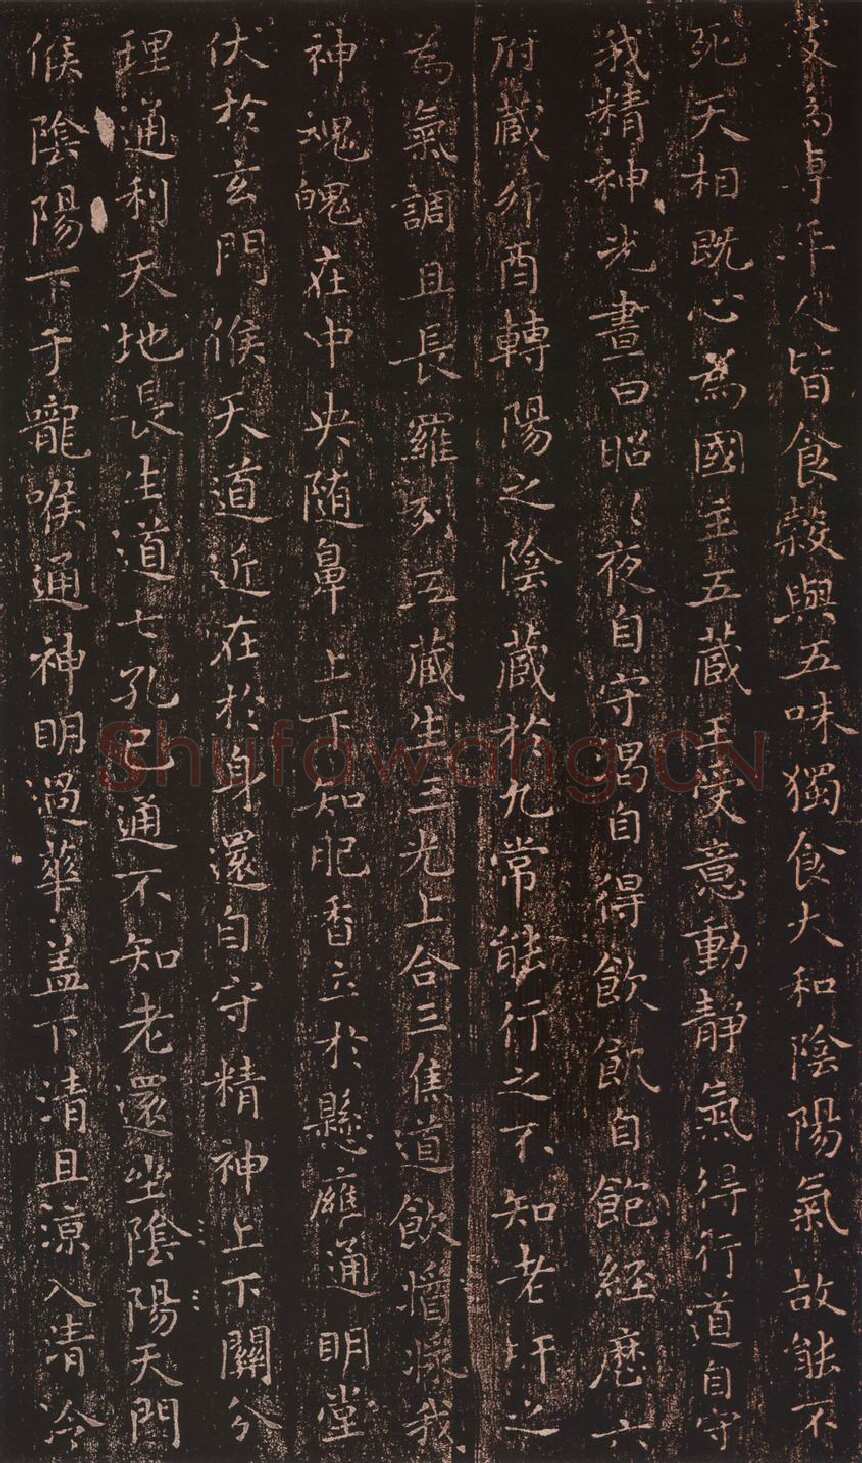 為專年人皆食穀與五味獨食大和陰陽氣故能不
死天相既心為國主五蔵王受意動靜氣得行道自守
我精神光晝日昭〻夜自守渴自得飲飢自飽經歷六
府蔵卯酉轉陽之陰蔵於九常能行之不知老肝之
為氣調且長羅列五蔵生三光上合三焦道飲醬漿我
神魂魄在中央随鼻上下知肥香立於懸癰通明堂
伏於玄門候天道近在於身還自守精神上下關分
理通利天地長生道七孔已通不知老還坐陰陽天門
候陰陽下于嚨喉通神明過華盖下清且涼入清冷
Shufawang.CN